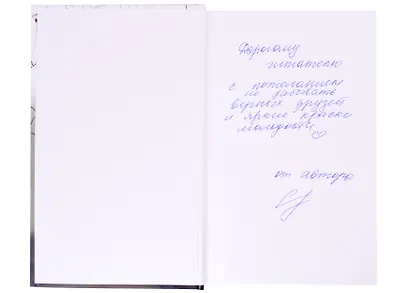 Дорогому
читателю
с пожеланием
не забывать
верных друзей
и яркие краски
молодости
от автора